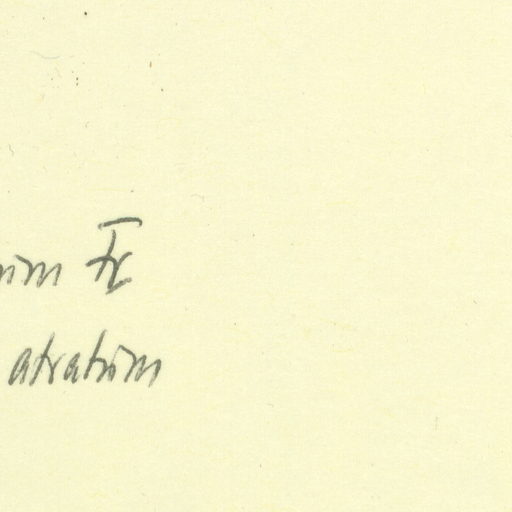 Fr
atratum